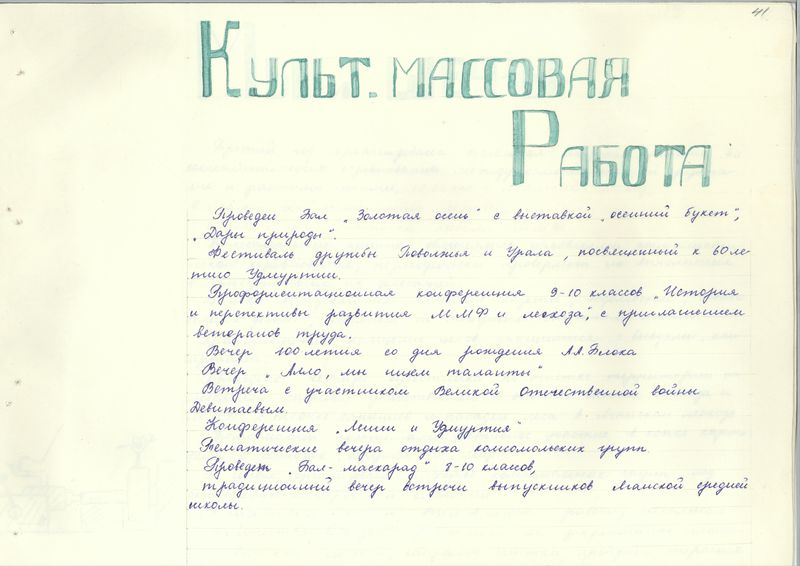 41
Культ. массовая
Работа
Проведен Бал „Золотая осень" с выставкой „осенний букет",
„Дары природы".
Фестиваль дружбы Поволжья и Урала, посвященный к 60ле-
тию Удмуртии.
Профориентационная конференция 9-10 классов „История
и перпективы развития ММФ и лесхоза", с приглашением
ветеранов труда.
Вечер 100летия со дня рождения А.А.Блока
Вечер „Алло, мы ищем таланты"
Встреча с участником Великой Отечественной войны
Девитаевым.
Конференция „Ленин и Удмуртия"
Тематические вечера отдыха комсомольских групп.
Проведен „Бал-маскарад" 8-10 классов,
традиционный вечер встречи выпускников средней
школы.